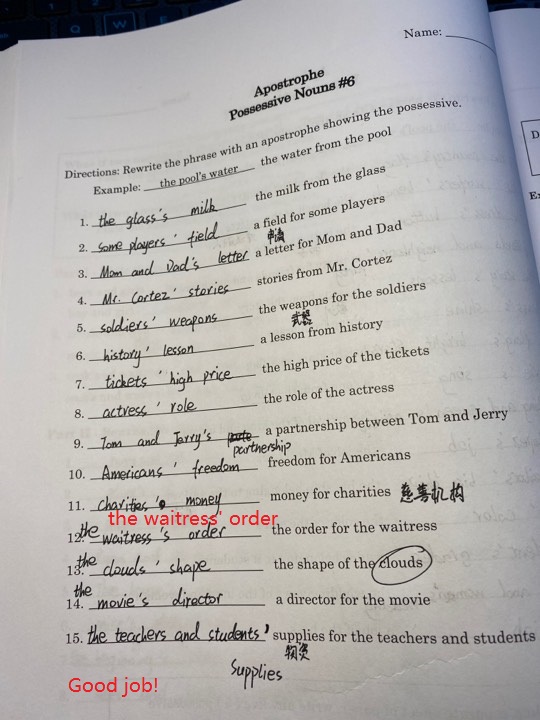 Name:
Apostrophe
Possessive Nouns #6
Directions: Rewrite the phrase with an apostrophe showing the possessive.
Example: the pool's water the water from the pool
1. the glass's milk the milk from the glass
2. some players' field a field for some players
申请
3. Mom and Dad's letter a letter for Mom and Dad
4. Mr. Cortez' stories stories from Mr. Cortez
5. soldiers' weapons the weapons for the soldiers
武器
6. history' lesson a lesson from history
7. tickets' high price the high price of the tickets
8. actress' role the role of the actress
9. Tom and Jerry's a partnership between Tom and Jerry
partnership
10. Americans' freedom freedom for Americans
11. charities' money money for charities 慈善机构
the waitress' order
12. the waitress's order the order for the waitress
13. the clouds' shape the shape of the clouds
14. the movie's director a director for the movie
15. the teachers and students' supplies for the teachers and students
物资
Supplies
Good job!